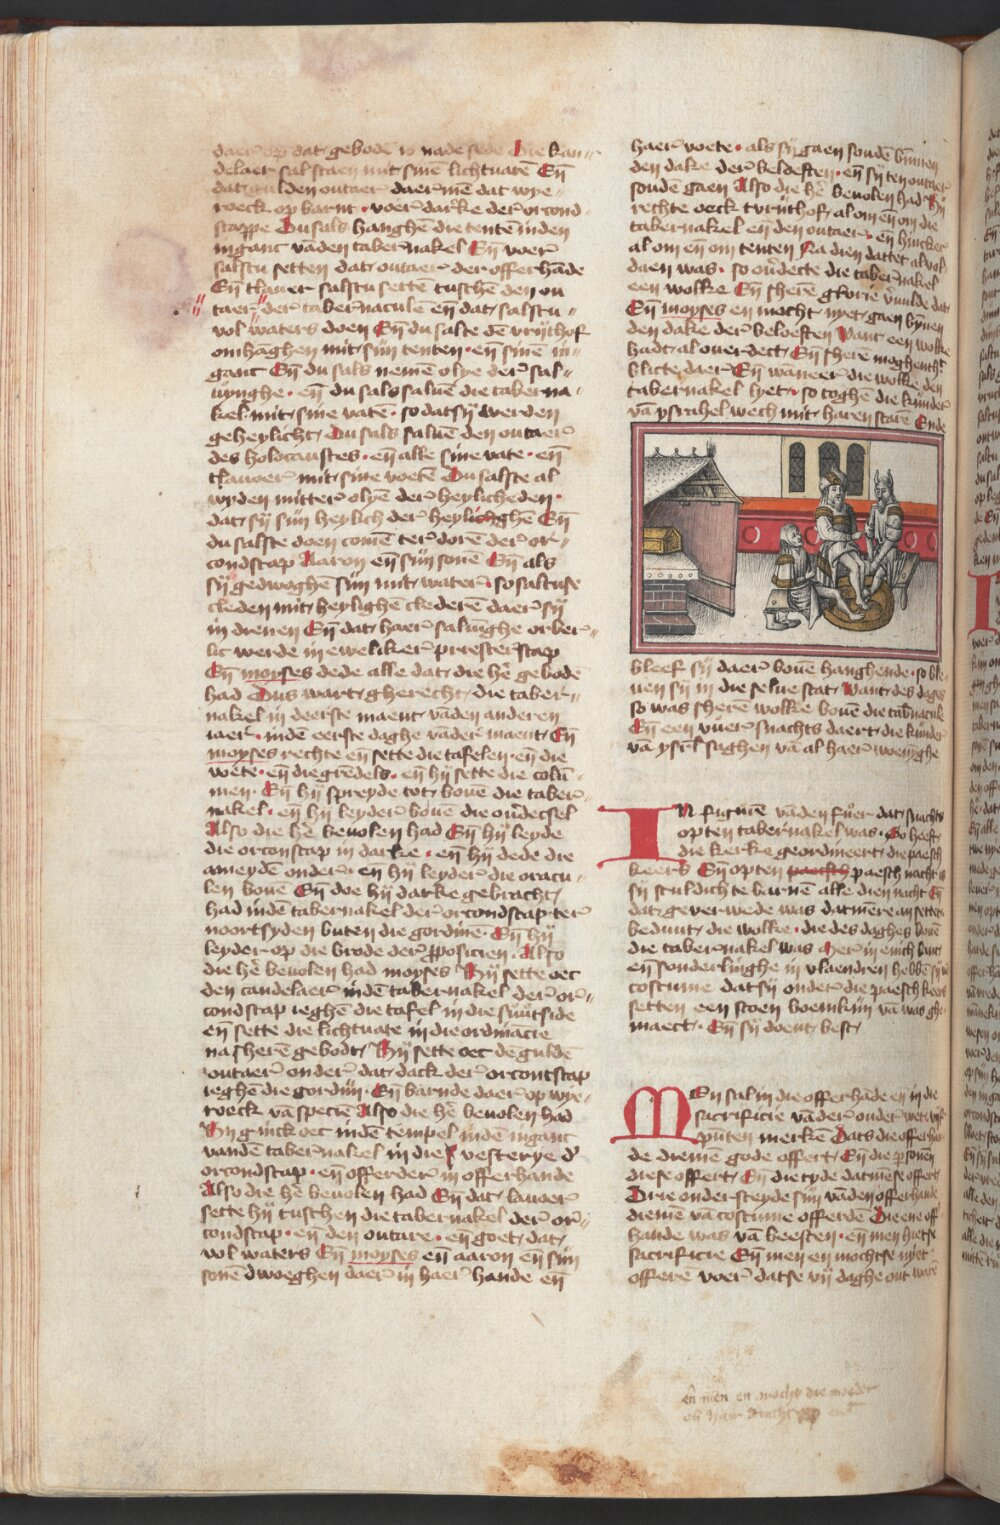 dat gebodē is nade sede Die kan-
delaer sal staen mit sinē lichtuatē Eñ
dat gulden outaer daermē dat wye-
roeck op barnt · voer darke der orcond-
scappe Du sals hanghē die tentē inden
inganc vādē tabernakel Eñ voer
salstu setten dat outaer der offerhāde
Eñ tlauer salstu settē tuschē den ou
taer der tabernaculē eñ dat salstu
vol waters doen Eñ du salte dē vrijthof
omhāghen mit sijn tenten · eñ sinē in-
ganc Eñ du sals nemē olye der sal-
uinghe · eñ du sals saluē die taberna-
kel mit sine vatē · so dat sij werden
geheylicht Du sals saluē den outaer
des holocaustes · eñ alle sine vate · eñ
tlauoer mit sine voetē Du salste al
wyden mitter olyē der heylicheden ·
dat sij sijn heylich der heylichghē Eñ
du salste doen comē ter dorē der or-
condscap Aaron eñ sijn sonē Eñ als
sij gedwoghē sijn mit water so saltuse
cleden mit heylighē clederē daer sij
in dienen Eñ dat haer saluīghe orber-
lic werde in eweliker priesterscap
Eñ moyses dede alle dat die hē gebodē
had Dus wart gherecht die taber-
nakel in deerste maent vāden anderen
iaer · indē eerste daghe vāder maent Eñ
moyses rechte eñ sette die tafelen · eñ die
voete · eñ die grēdels · eñ hij sette die colū-
men · Eñ hij spreyde tot bouē die taber-
nakel · eñ hij leyder bouē die ouerdecsel
Also die hē beuolen had Eñ hij leyde
die orconscap in darke · eñ hij dede die
ameyden onder · en hij leyder die oracu-
len bouē Eñ doe hij darke gebracht
had indē tabernakel der orcondscap ter
noortsyden buten die gordinē · Eñ hij
leyder op die brode der pposicien · Also
die hē beuolen had moyses Hij sette oec
den candelaer indē tabernakel der or-
condscap ieghē die tafel in die suutside
eñ sette die lichtuate in die ordināćie
na sherē gebodt Hij sette oec dē guldē
outaer onder dat dack der orcontscap
ieghē die gordijn · Eñ barnde daer op wie-
roeck vā speciē Also die hē beuolen had
Hij ginck oec indē tempel indē inganc
vandē tabernakel in die vesterye d'
orcondscap · eñ offerder in offerhande
Also die hē beuolen had Eñ dat lauoer
sette hij tuschen die tabernakel der or-
condscap · eñ den outare · eñ goet dat
vol waters Eñ moyses eñ aaron eñ sijn
sonē dwoeghen daer in haer hande eñ
haer voete · als sij gaen soudē binnen
den dake der beloeften · eñ sij ten outaer
soudē gaen Also die hē beuolen had Hij
rechte oeck tvrijthof al om eñ om die
tabernakel eñ den outaer · eñ hincker
al om eñ om tenten Na dien dattet al vol
daen was · so oūdecte die tabernakel
een wolke Eñ sherē glorie vuulde dat
Eñ moyses en mocht nyet gaen bynen
den dake der beloeften Want een wolke
hadt al ouerdect Eñ shere moghentht
blicte daer Eñ wāneer die wolke den
tabernakel lyet · so toghē die kinder
vā ysrahel wech mit haren scarē Ende
bleef sij daer bouē hanghende · so ble-
uen sij in die selue stat Want des dages
so was sherē wolke bouē die tabnacule
Eñ een vuer snachts daert die kinder
vā ysrl saghen vā al haer wenighe
IN figurē vāden fuer dat snachts
op ten tabernakel was · So heeft
die kerke geordineert die paesch
keers Eñ op ten paesch nacht is
sij sculdich te barnē alle dien nacht Eñ
dat geverwede was datmēre an settet
bedunt die wolke · die des daghes bouē
die tabernakel was Mer in enich lant
eñ sonderlinghe in vlaendren hebbē sij
costume dat sij onder die paesch keers
setten een scoen boemkijn vā was ghe
maect · Eñ sij doent best
MEn sal in die offerhāde eñ in die
sacrificie vāder ouder wet vijf
pūten merkē Dats die offerhā
de diemē gode offert Eñ die psonē
diese offert Eñ die tyde datmēse offert
Drie ondersceyde sijn vāden offerhande
diemē vā costume offerdē Die ene off
hande was vā beesten · eñ men hietse
sacrificie Eñ men en mochtse nyet
offerē voer datse vij daghe out warē
eñ mēn en mocht die moeder